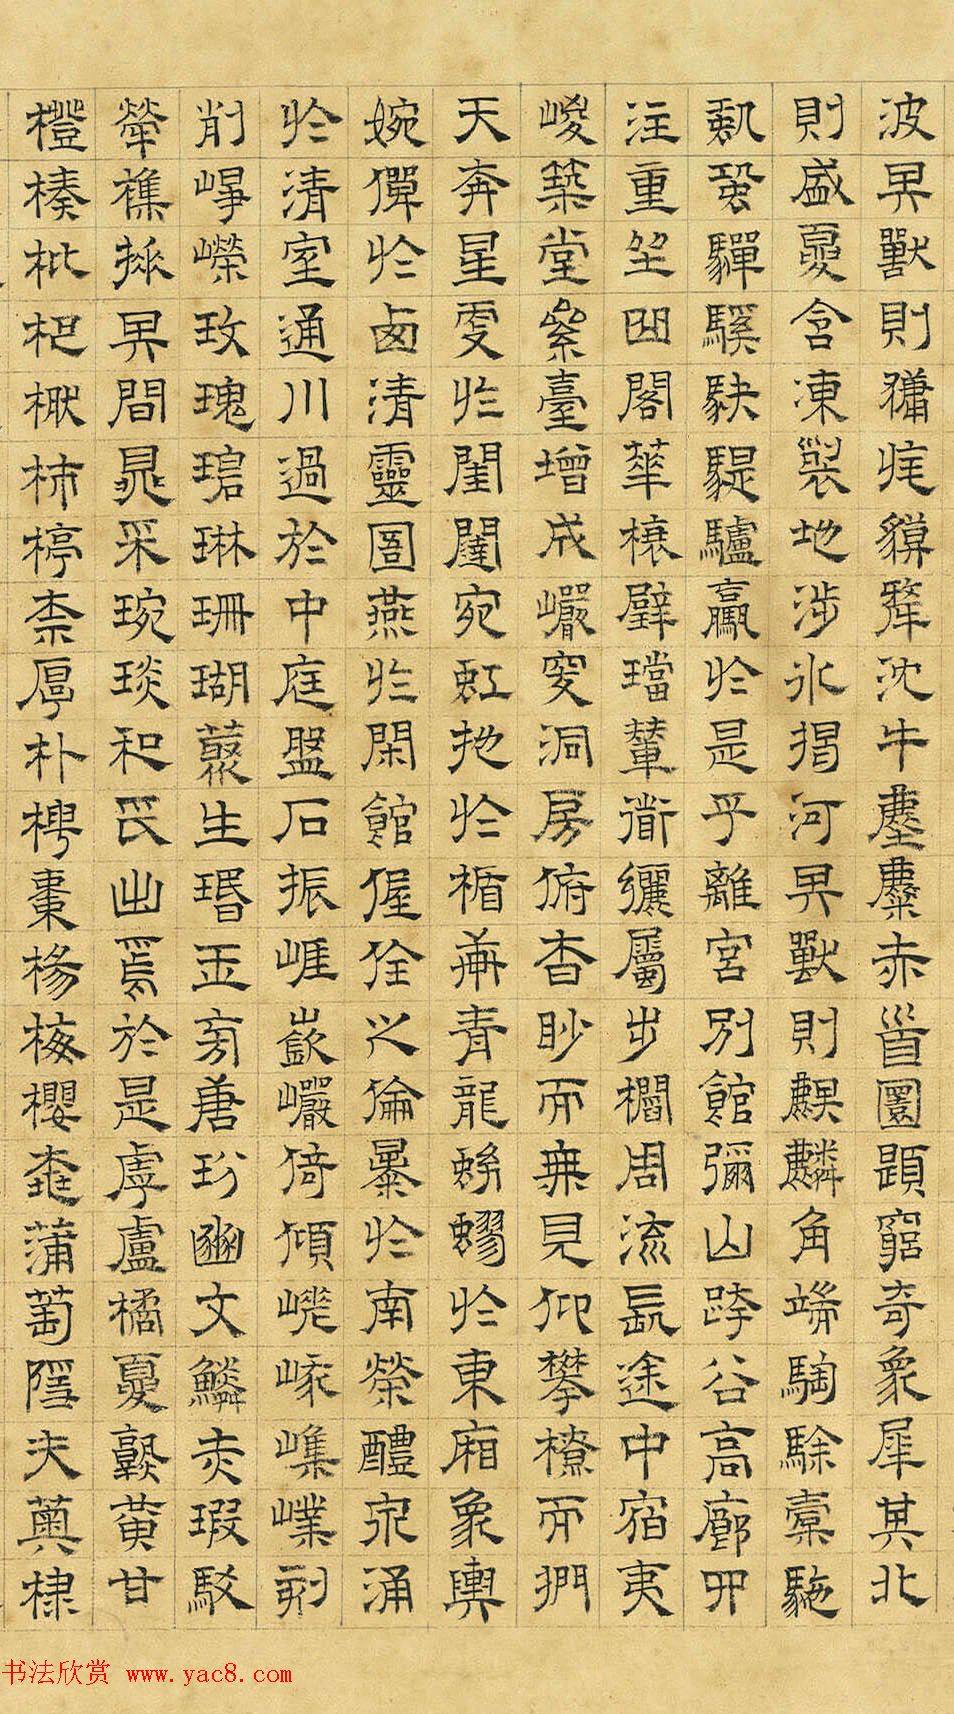 波其獸則㺎旄貘犛沈牛麈麋赤首圜題窮奇象犀其北
則盛夏含凍裂地涉冰揭河其獸則麒麟角端騊駼橐駞
蛩蛩驒騱駃騠驢驘於是乎離宮別館彌山跨谷高廊四
注重坐曲閣華榱璧璫輦道纚屬步櫩周流長途中宿夷
嵕築堂絫臺增成巖窔洞房俯杳眇而無見仰攀橑而捫
天奔星更於閨闥宛虹拖於楯軒青龍蚴蟉於東廂象輿
婉僤於西清靈圄燕於閒館偓佺之倫暴於南榮醴泉涌
於清室通川過於中庭盤石振崖嶔巖倚傾嵯峨嶕嶫刻
削崢嶸玫瑰碧琳珊瑚叢生瑉玉旁唐玢豳文鱗赤瑕駁
犖雜插其間晁采琬琰和氏出焉於是虖盧橘夏孰黃甘
橙楱枇杷橪柿楟柰厚朴梬棗楊梅櫻桃蒲萄隱夫薁棣
书法欣赏 www.yac8.com